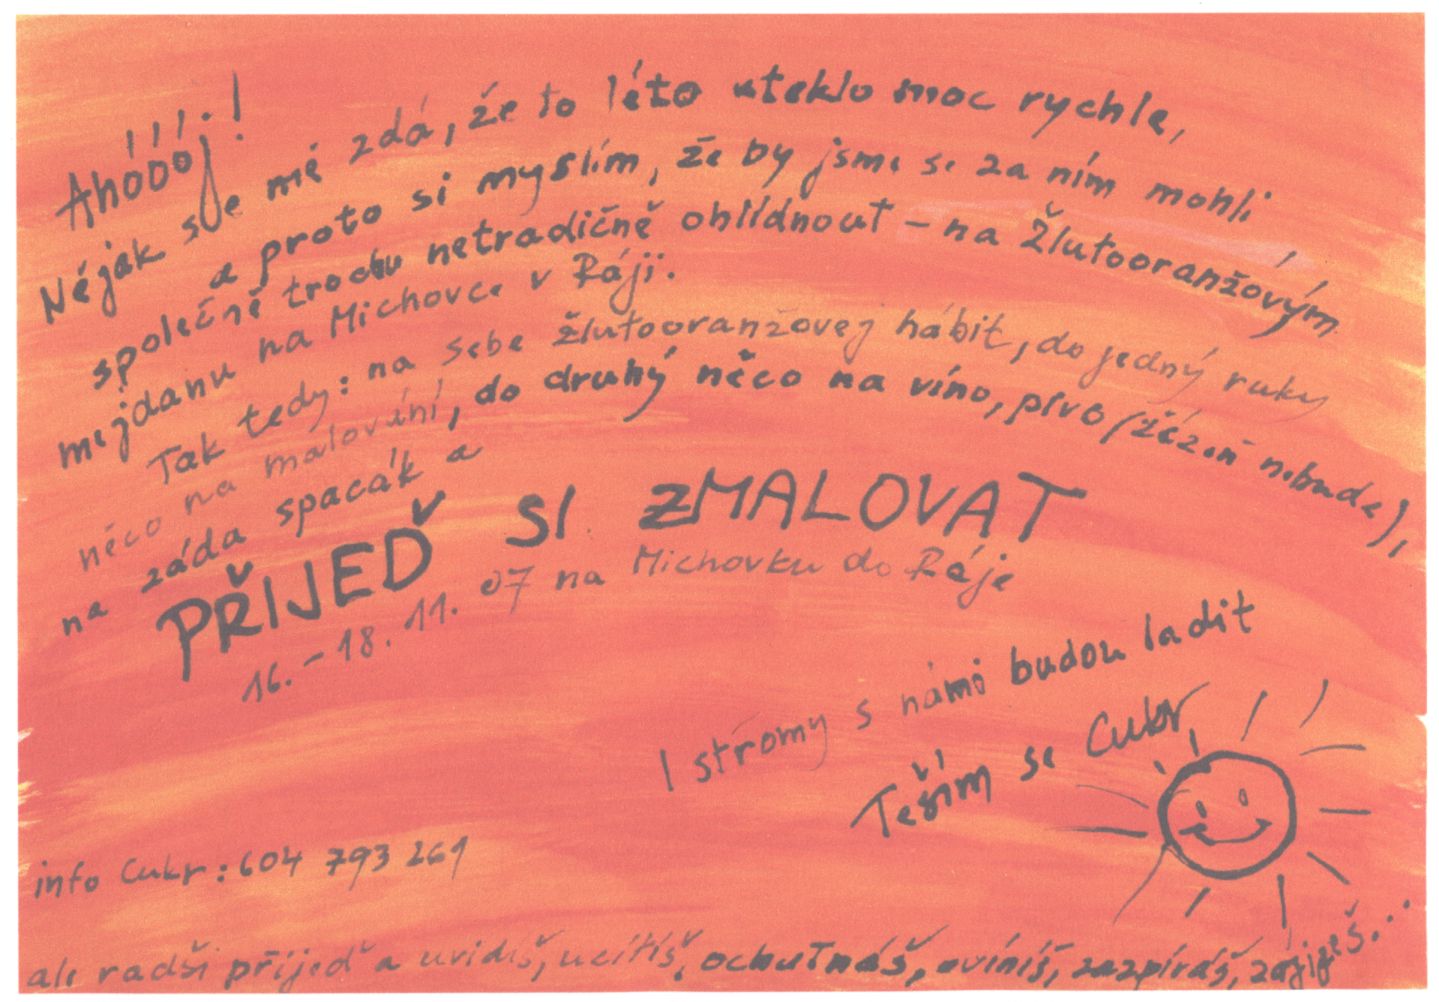 Ahóóój!
Nějak se mě zdá, že to léto uteklo moc rychle,
a proto si myslím, že by jsme se za ním mohli
společně trochu netradičně ohlídnout – na žlutooranžovým
mejdanu na Michovce v Ráji.
Tak tedy: na sebe žlutooranžovej hábit, do jedný ruky
něco na malování, do druhý něco na víno, pivo (žízeň nebude),
na záda spacák a
PŘIJEĎ SI ZMALOVAT
16. – 18. 11. 07 na Michovku do Ráje
I stromy s námi budou ladit
Těším se Cukr
info Cukr: 604 793 269
ale radši přijeď a uvidíš, ucítíš, ochutnáš, zazpíváš, zažiješ...